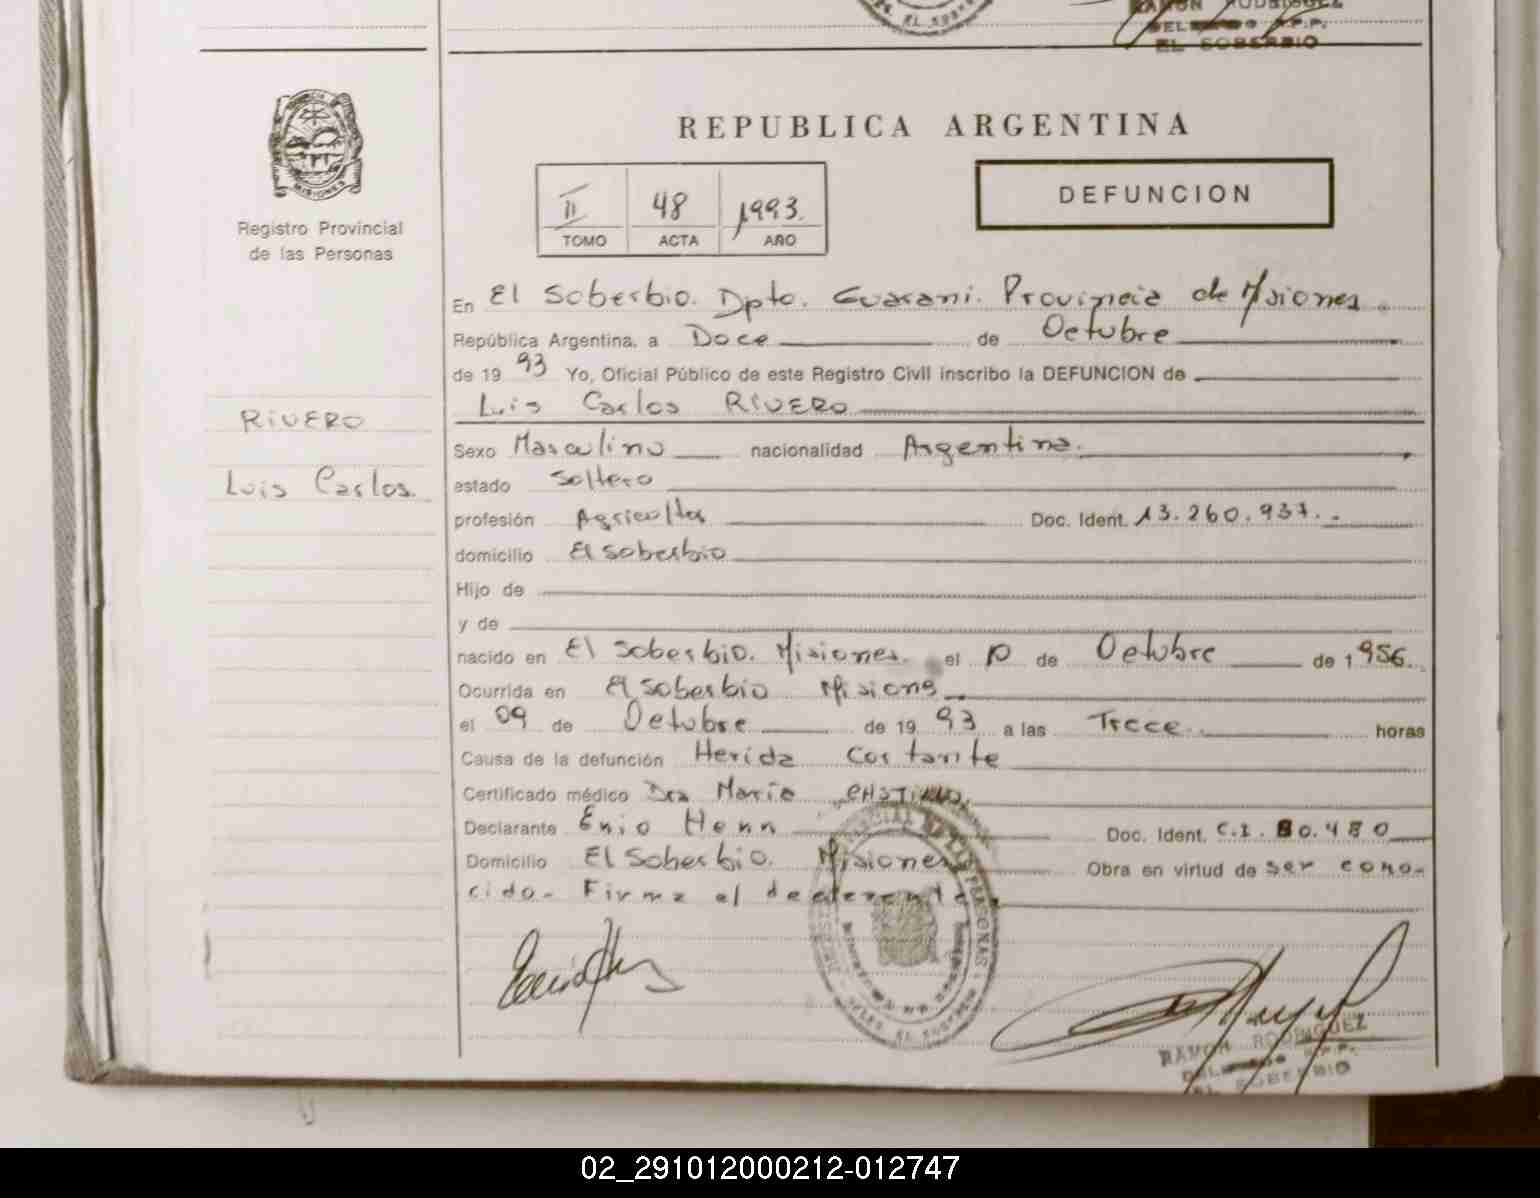 RAMON RODRIGUEZ
EL SOBERBIO
REPUBLICA ARGENTINA
II 48 1993.
TOMO ACTA AÑO
DEFUNCION
MISIONES
Registro Provincial
de las Personas
RIVERO
Luis Carlos.
En El Soberbio. Dpto. Guarani. Provincia de Misiones.
República Argentina, a Doce de Octubre
de 1993 Yo, Oficial Público de este Registro Civil inscribo la DEFUNCION de
Luis Carlos RIVERO
Sexo Masculino nacionalidad Argentina.
estado Soltero
profesión Agricultor Doc. Ident. 13.260.937.
domicilio El Soberbio
Hijo de
y de
nacido en El Soberbio. Misiones. el 10 de Octubre de 1956.
Ocurrida en El Soberbio Misiones
el 09 de Octubre de 1993 a las Trece horas
Causa de la defunción Herida Cortante
Certificado médico Dra Maria
Declarante Enio Henn Doc. Ident. C.I. 80.480
Domicilio El Soberbio. Misiones Obra en virtud de ser cono-
cido. Firma el declarante
RAMON RODRIGUEZ
EL SOBERBIO
02_291012000212-012747